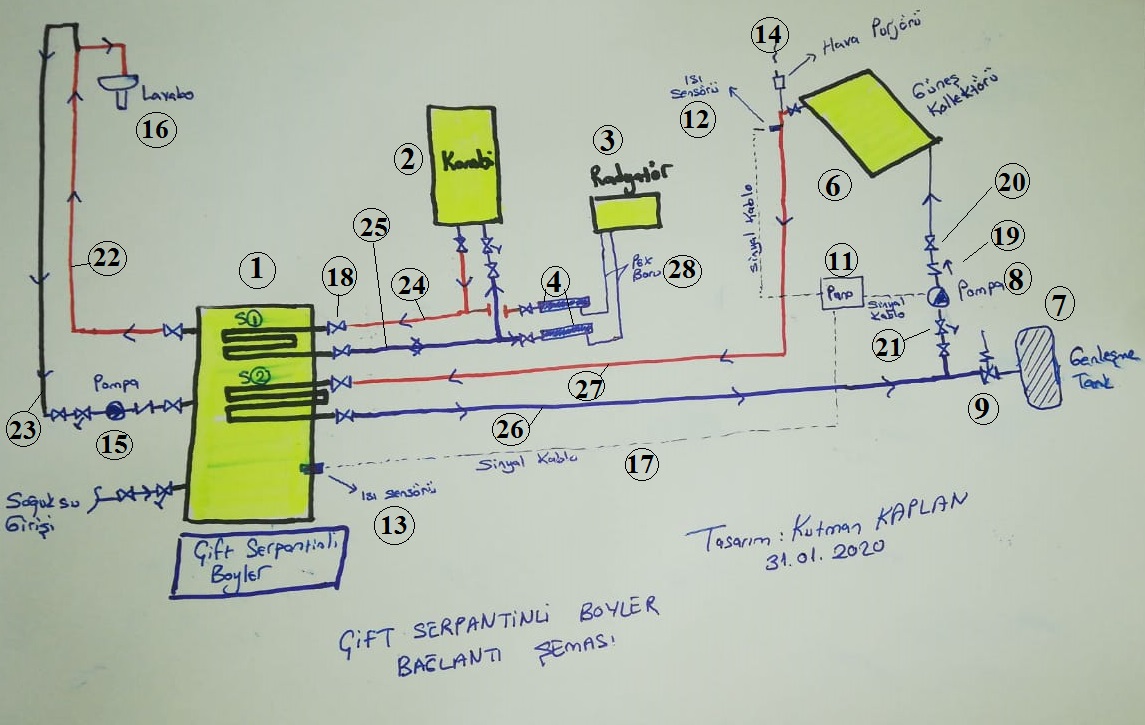 14
Hava Pürjörü
Isı
Sensörü
12
Güneş
Kollektörü
6
Lavabo
16
2
Kombi
3
Radyatör
20
19
25
22
1
18
24
4
Pex
Boru
28
Sinyal Kablo
11
Pano
Sinyal
Kablo
Pompa
8
7
Genleşme
Tank
21
9
S①
S②
27
26
Pompa
15
23
Sinyal Kablo
17
Isı sensörü
13
Soğuk su
Girişi
Çift Serpantinli
Boyler
Tasarım : Kutman KAPLAN
31.01.2020
ÇİFT SERPANTİNLİ BOYLER
BAĞLANTI ŞEMASI